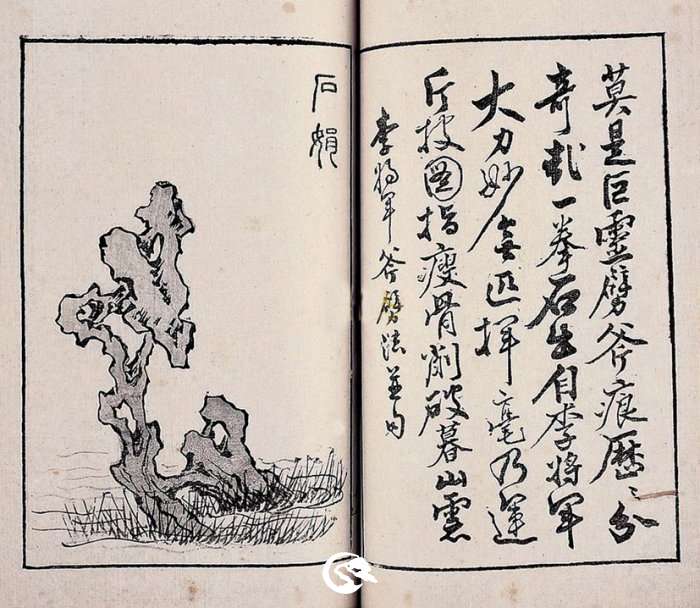 莫是巨靈劈斧痕歷々分
奇哉一拳石生自李將軍
大力妙無匹揮毫乃運
斤披圖指瘦骨削破暮山雲
李將軍斧劈法並句
石娟